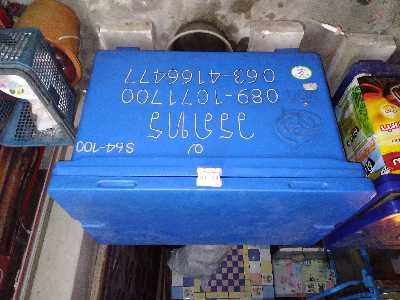 S64-100
วรภัทร
089-1071700
063-4166477